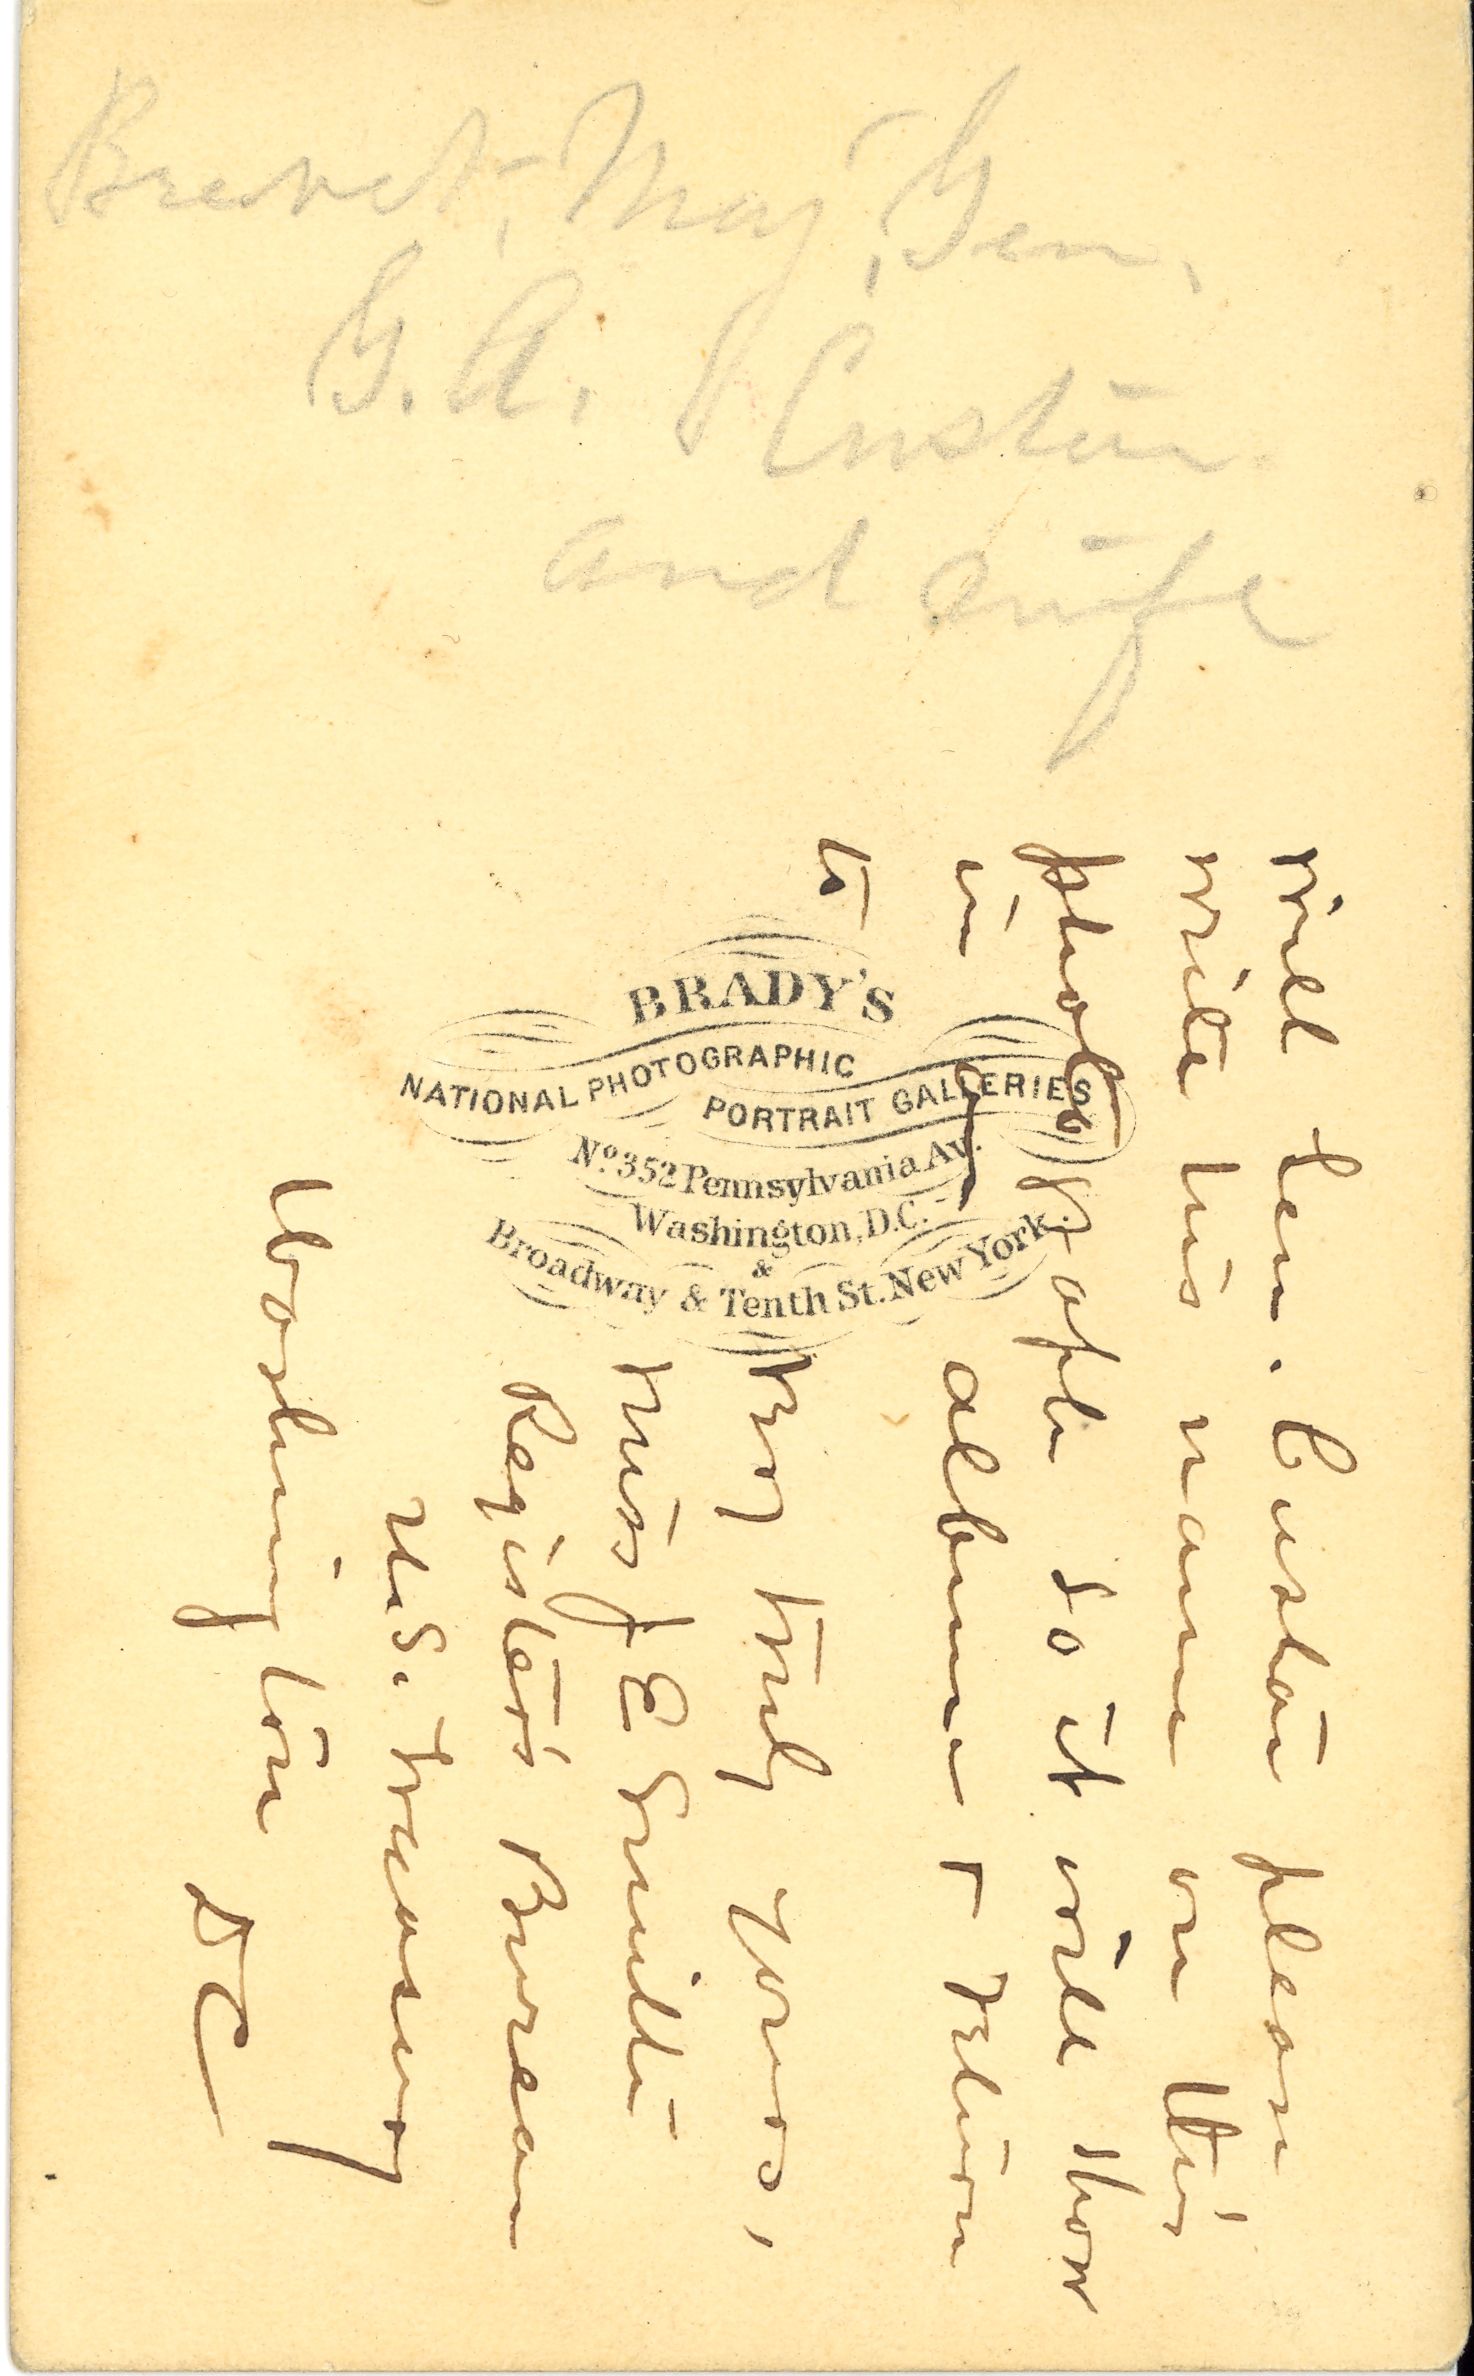 Brevet, Maj, Gen,
G. A. Custer.
and wife
BRADY'S
NATIONAL PHOTOGRAPHIC
PORTRAIT GALLERIES
No. 352 Pennsylvania Av.
Washington, D.C.
&
Broadway & Tenth St. New York.
Will Gen. Custer please
write his name on this
photograph so it will show
in my album & return
to
Very truly yours,
Miss J E Smith
Register's Bureau
U.S. Treasury
Washington
D C